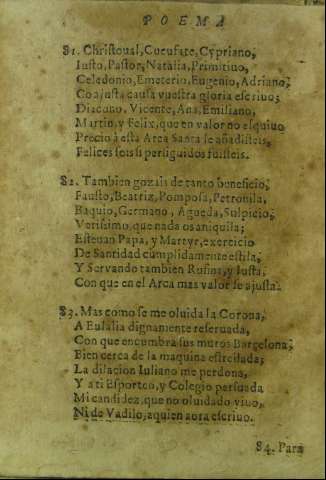 POEMA
81. Christoual, Cucufate, Cypriano,
Iusto, Pastor, Natalia, Primitiuo,
Celedonio, Emeterio, Eugenio, Adriano;
Co ajusta causa vuestra gloria escriuo;
Diacono, Vicente, Ana, Emiliano,
Martin, y Felix, que en valor no esquiuo
Precio à esta Arca Santa se añadisteis,
Felices sois si perseguidos fuisteis.
82. Tambien gozais de tanto beneficio,
Fausto, Beatriz, Pomposa, Petronila,
Baquio, Germano, Agueda, Sulpicio,
Verissimo, que nada os aniquila;
Esteuan Papa, y Martyr, exercicio
De Santidad cumplidamente estila,
Y Seruando tambien Rufina, y Iusta,
Con que en el Arca mas valor se ajusta.
83. Mas como se me oluida la Corona,
A Eulalia dignamente reseruada,
Con que encumbra sus muros Barcelona,
Bien cerca de la maquina estrellada;
La dilacion Iuliano me perdona,
Y a ti Esporteo, y Colegio persuada
Mi candidez, que no oluidado viuo,
Ni de Vadilo, a quien aora escriuo.
84. Para